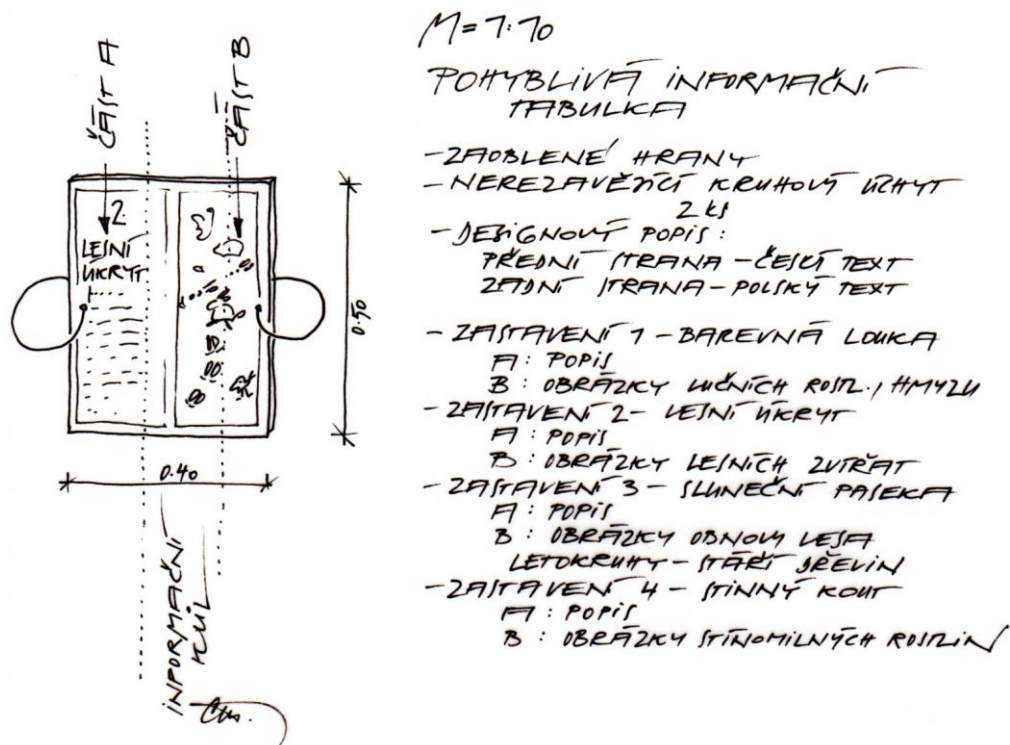 ČÁST A
ČÁST B
2.
LESNÍ
ÚKRYT
0.50
0.40
INFORMAČNÍ
KŮL
M=1:10
POHYBLIVÁ INFORMAČNÍ
TABULKA
-ZAOBLENÉ HRANY
-NEREZAVĚJÍCÍ KRUHOVÝ ÚCHYT
2 KS
-DESIGNOVÝ POPIS:
PŘEDNÍ STRANA-ČESKÝ TEXT
ZADNÍ STRANA-POLSKÝ TEXT
-ZASTAVENÍ 1-BAREVNÁ LOUKA
A: POPIS
B: OBRÁZKY LUČNÍCH ROSTL., HMYZU
-ZASTAVENÍ 2- LESNÍ ÚKRYT
A: POPIS
B: OBRÁZKY LESNÍCH ZVÍŘAT
-ZASTAVENÍ 3-SLUNEČNÍ PASEKA
A: POPIS
B: OBRÁZKY OBNOVY LESA
LETOKRUHY-STÁŘÍ DŘEVIN
-ZASTAVENÍ 4 - STINNÝ KOUT
A: POPIS
B: OBRÁZKY STÍNOMILNÝCH ROSTLIN